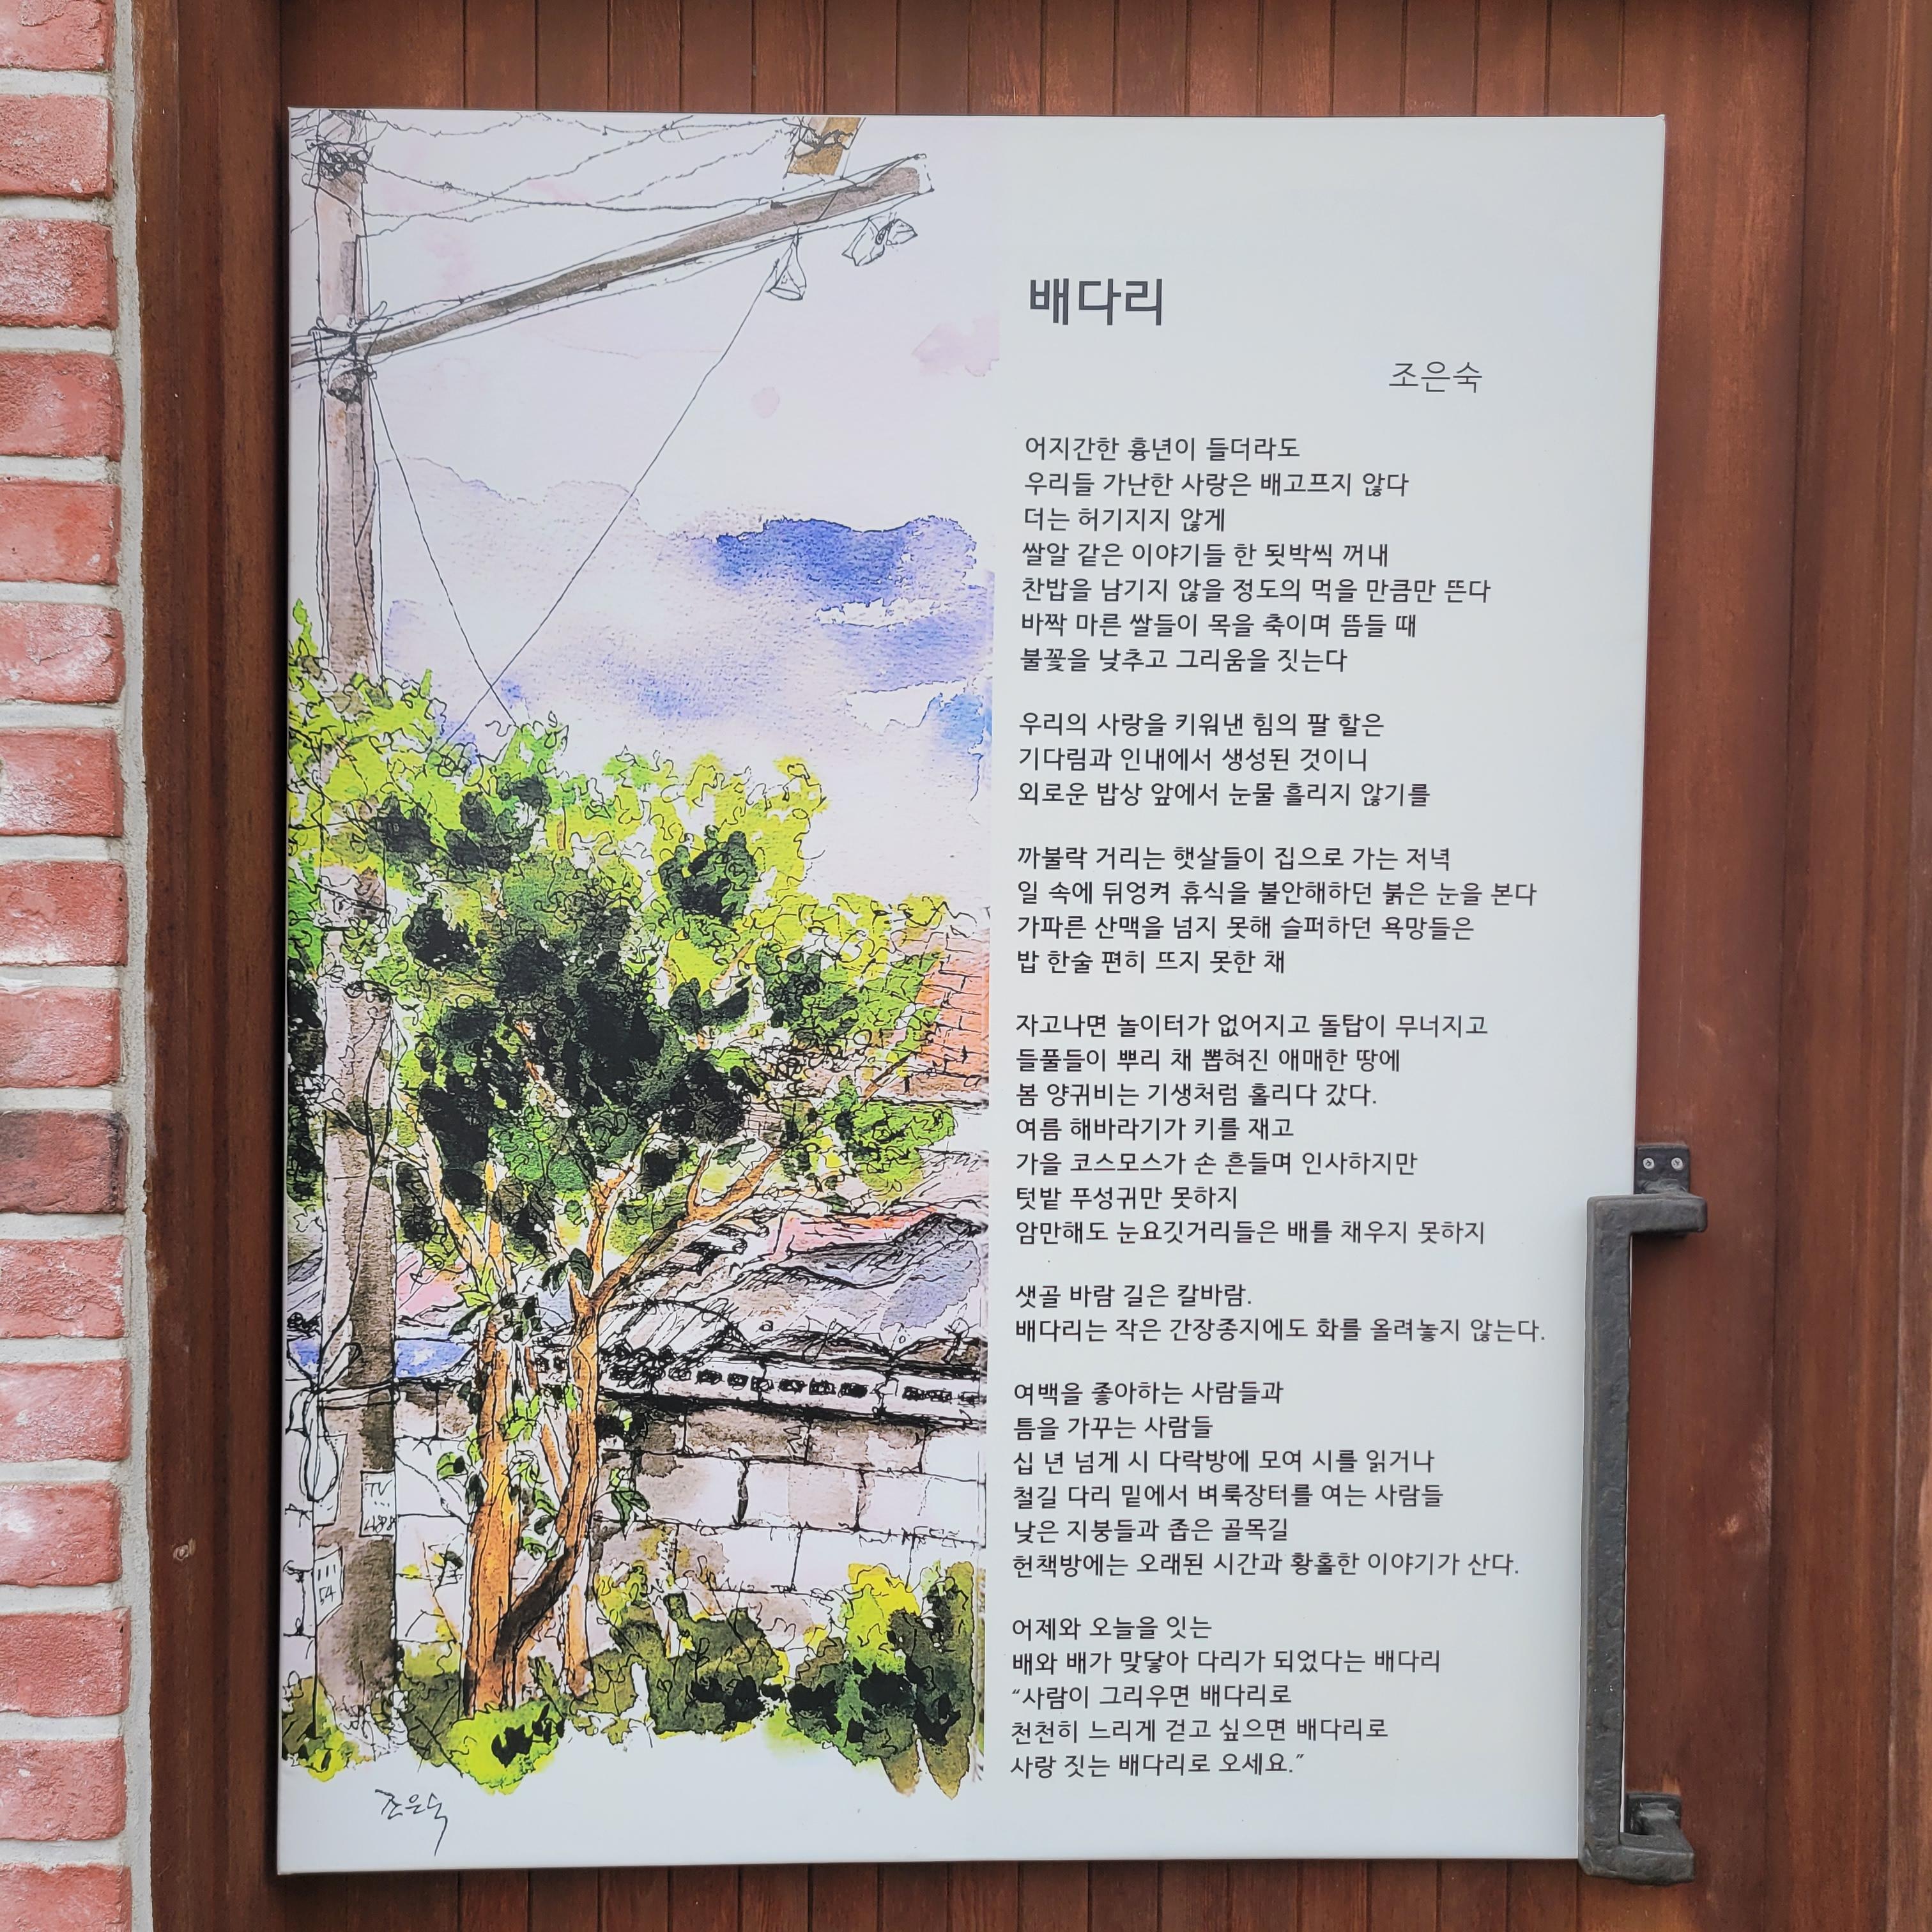 배다리
조은숙
어지간한 흉년이 들더라도
우리들 가난한 사랑은 배고프지 않다
더는 허기지지 않게
쌀알 같은 이야기들 한 됫박씩 꺼내
찬밥을 남기지 않을 정도의 먹을 만큼만 뜬다
바짝 마른 쌀들이 목을 축이며 뜸들 때
불꽃을 낮추고 그리움을 짓는다
우리의 사랑을 키워낸 힘의 팔 할은
기다림과 인내에서 생성된 것이니
외로운 밥상 앞에서 눈물 흘리지 않기를
까불락 거리는 햇살들이 집으로 가는 저녁
일 속에 뒤엉켜 휴식을 불안해하던 붉은 눈을 본다
가파른 산맥을 넘지 못해 슬퍼하던 욕망들은
밥 한술 편히 뜨지 못한 채
자고나면 놀이터가 없어지고 돌탑이 무너지고
들풀들이 뿌리 채 뽑혀진 애매한 땅에
봄 양귀비는 기생처럼 홀리다 갔다.
여름 해바라기가 키를 재고
가을 코스모스가 손 흔들며 인사하지만
텃밭 푸성귀만 못하지
암만해도 눈요깃거리들은 배를 채우지 못하지
샛골 바람 길은 칼바람.
배다리는 작은 간장종지에도 화를 올려놓지 않는다.
여백을 좋아하는 사람들과
틈을 가꾸는 사람들
십 년 넘게 시 다락방에 모여 시를 읽거나
철길 다리 밑에서 벼룩장터를 여는 사람들
낮은 지붕들과 좁은 골목길
헌책방에는 오래된 시간과 황홀한 이야기가 산다.
어제와 오늘을 잇는
배와 배가 맞닿아 다리가 되었다는 배다리
“사람이 그리우면 배다리로
천천히 느리게 걷고 싶으면 배다리로
사랑 짓는 배다리로 오세요.”
조은숙